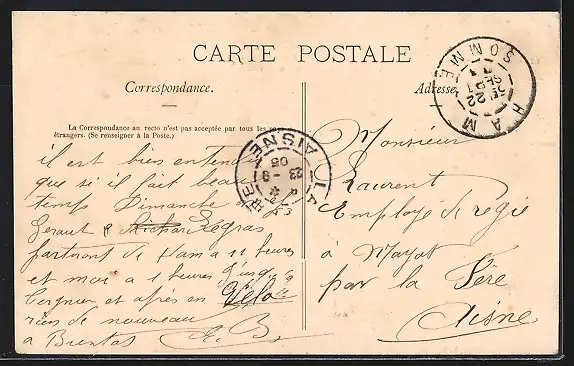 CARTE POSTALE
Correspondance.
Adresse
La Correspondance au recto n'est pas acceptée par tous les pays
étrangers. (Se renseigner à la Poste.)
il est bien entendu
que si il fait beau
temps Dimanche
Geraut Legras
partiront de Ham a 11 heures
et moi a 1 heures
et après en Vélo
rien de nouveau
a Bientot
Monsieur
Laurent
Employé de régie
à Mayot
par la Fère
Aisne
HAM
SOMME
22
SEPT
LA FERE
AISNE
23 - 9
05